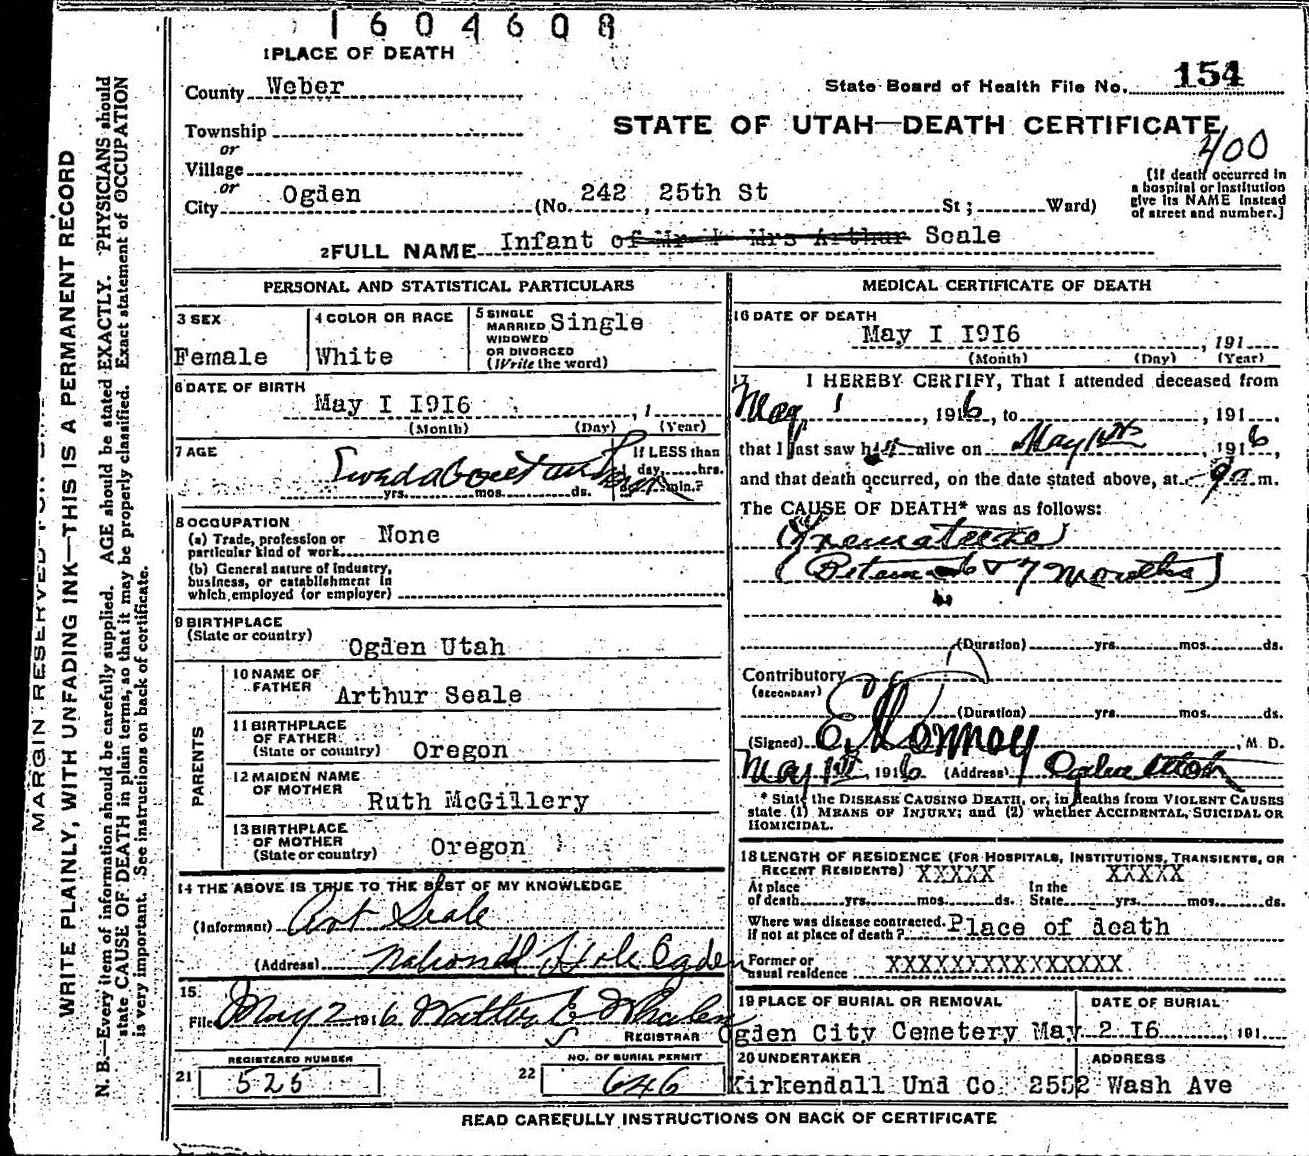 1604608
1 PLACE OF DEATH
County Weber
State Board of Health File No. 154
Township
or
STATE OF UTAH—DEATH CERTIFICATE
400
Village
or
City Ogden (No. 242 25th St St; Ward)
[If death occurred in
a hospital or institution
give its NAME instead
of street and number.]
2 FULL NAME Infant of Mr & Mrs Arthur Seale
PERSONAL AND STATISTICAL PARTICULARS
3 SEX
Female
4 COLOR OR RACE
White
5 SINGLE
MARRIED
WIDOWED
OR DIVORCED
(Write the word)
Single
6 DATE OF BIRTH
May I I9I6 , 1
(Month) (Day) (Year)
7 AGE
Lived about an hour
yrs. mos. ds.
If LESS than
1 day, hrs.
or min.?
8 OCCUPATION
(a) Trade, profession or
particular kind of work None
(b) General nature of industry,
business, or establishment in
which employed (or employer)
9 BIRTHPLACE
(State or country)
Ogden Utah
PARENTS
10 NAME OF
FATHER Arthur Seale
11 BIRTHPLACE
OF FATHER
(State or country) Oregon
12 MAIDEN NAME
OF MOTHER
Ruth McGillery
13 BIRTHPLACE
OF MOTHER
(State or country) Oregon
14 THE ABOVE IS TRUE TO THE BEST OF MY KNOWLEDGE
(Informant) Art Seale
(Address) National Hole Ogden
15
Filed May 2 1916
REGISTRAR
REGISTERED NUMBER
21 525
NO. OF BURIAL PERMIT
22 646
MEDICAL CERTIFICATE OF DEATH
16 DATE OF DEATH
May I I9I6 , 191
(Month) (Day) (Year)
17 I HEREBY CERTIFY, That I attended deceased from
May 1 , 1916, to , 191 ,
that I last saw h alive on May 1st , 1916,
and that death occurred, on the date stated above, at 9 a m.
The CAUSE OF DEATH* was as follows:
Premature
(Between 6 & 7 months)
(Duration) yrs. mos. ds.
Contributory
(SECONDARY)
(Duration) yrs. mos. ds.
(Signed) , M. D.
May 1st, 1916 (Address) Ogden Utah
* State the DISEASE CAUSING DEATH, or, in deaths from VIOLENT CAUSES
state (1) MEANS OF INJURY; and (2) whether ACCIDENTAL, SUICIDAL OR
HOMICIDAL.
18 LENGTH OF RESIDENCE (FOR HOSPITALS, INSTITUTIONS, TRANSIENTS, OR
RECENT RESIDENTS) XXXXX XXXXX
At place
of death yrs. mos. ds.
In the
State yrs. mos. ds.
Where was disease contracted,
if not at place of death? Place of death
Former or
usual residence XXXXXXXXXXXXXXX
19 PLACE OF BURIAL OR REMOVAL
Ogden City Cemetery
DATE OF BURIAL
May 2 I6 191
20 UNDERTAKER
Kirkendall Und Co.
ADDRESS
2552 Wash Ave
READ CAREFULLY INSTRUCTIONS ON BACK OF CERTIFICATE
MARGIN RESERVED FOR
WRITE PLAINLY, WITH UNFADING INK—THIS IS A PERMANENT RECORD
N. B.—Every item of information should be carefully supplied. AGE should be stated EXACTLY. PHYSICIANS should
state CAUSE OF DEATH in plain terms, so that it may be properly classified. Exact statement of OCCUPATION
is very important. See instructions on back of certificate.